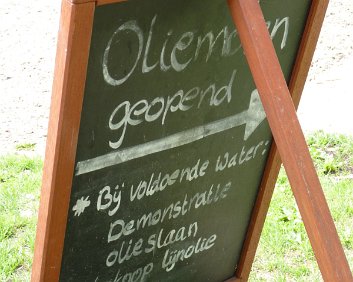 Oliemolen
geopend
* Bij voldoende water:
Demonstratie
olieslaan
verkoop lijnolie